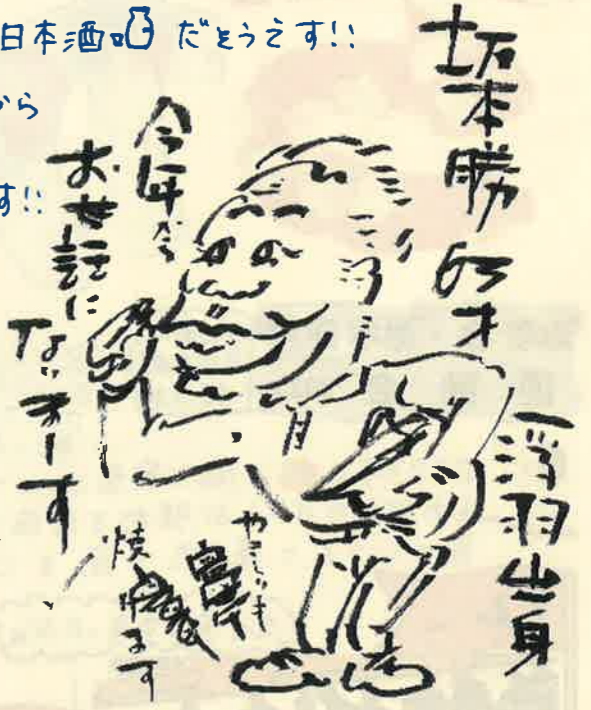 日本酒 だそうです!!
から
す!!
坂本勝 63才
浮羽出身
今年から
お世話に
なりまーす
やきとりも
焼けます